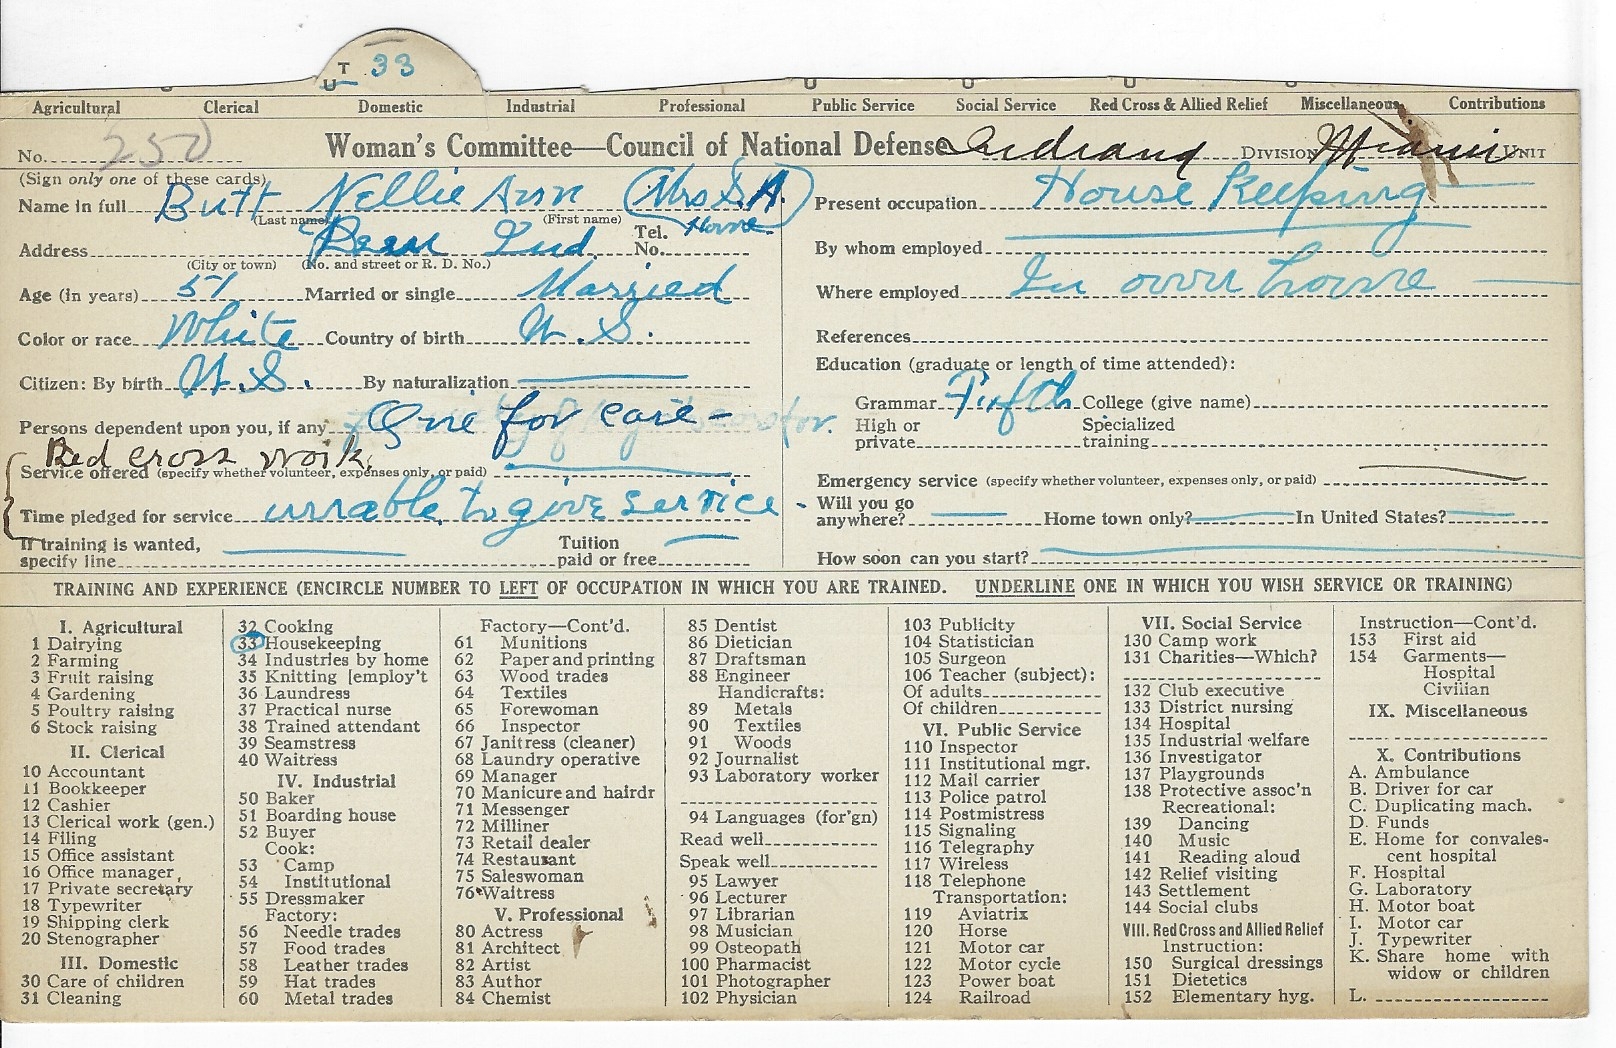 U T 33
Agricultural Clerical Domestic Industrial Professional Public Service Social Service Red Cross & Allied Relief Miscellaneous Contributions
No. 250 Woman's Committee—Council of National Defense Indiana DIVISION Miami UNIT
(Sign only one of these cards)
Name in full Butt Nellie Ann (Mrs S. A.)
(Last name) (First name)
Address Peru Ind. Tel. No. Home
(City or town) (No. and street or R. D. No.)
Age (in years) 51 Married or single Married
Color or race White Country of birth U. S.
Citizen: By birth U. S. By naturalization
Persons dependent upon you, if any One for care -
Red cross work.
Service offered (specify whether volunteer, expenses only, or paid)
Time pledged for service unable to give service -
If training is wanted, specify line Tuition paid or free
Present occupation House Keeping
By whom employed
Where employed In own home
References
Education (graduate or length of time attended):
Grammar Fifth College (give name)
High or private Specialized training
Emergency service (specify whether volunteer, expenses only, or paid)
Will you go anywhere? Home town only? In United States?
How soon can you start?
TRAINING AND EXPERIENCE (ENCIRCLE NUMBER TO LEFT OF OCCUPATION IN WHICH YOU ARE TRAINED. UNDERLINE ONE IN WHICH YOU WISH SERVICE OR TRAINING)
I. Agricultural
1 Dairying
2 Farming
3 Fruit raising
4 Gardening
5 Poultry raising
6 Stock raising
II. Clerical
10 Accountant
11 Bookkeeper
12 Cashier
13 Clerical work (gen.)
14 Filing
15 Office assistant
16 Office manager
17 Private secretary
18 Typewriter
19 Shipping clerk
20 Stenographer
III. Domestic
30 Care of children
31 Cleaning
32 Cooking
33 Housekeeping
34 Industries by home
35 Knitting [employ't
36 Laundress
37 Practical nurse
38 Trained attendant
39 Seamstress
40 Waitress
IV. Industrial
50 Baker
51 Boarding house
52 Buyer
Cook:
53 Camp
54 Institutional
55 Dressmaker
Factory:
56 Needle trades
57 Food trades
58 Leather trades
59 Hat trades
60 Metal trades
Factory—Cont'd.
61 Munitions
62 Paper and printing
63 Wood trades
64 Textiles
65 Forewoman
66 Inspector
67 Janitress (cleaner)
68 Laundry operative
69 Manager
70 Manicure and hairdr
71 Messenger
72 Milliner
73 Retail dealer
74 Restaurant
75 Saleswoman
76 Waitress
V. Professional
80 Actress
81 Architect
82 Artist
83 Author
84 Chemist
85 Dentist
86 Dietician
87 Draftsman
88 Engineer
Handicrafts:
89 Metals
90 Textiles
91 Woods
92 Journalist
93 Laboratory worker
94 Languages (for'gn)
Read well
Speak well
95 Lawyer
96 Lecturer
97 Librarian
98 Musician
99 Osteopath
100 Pharmacist
101 Photographer
102 Physician
103 Publicity
104 Statistician
105 Surgeon
106 Teacher (subject):
Of adults
Of children
VI. Public Service
110 Inspector
111 Institutional mgr.
112 Mail carrier
113 Police patrol
114 Postmistress
115 Signaling
116 Telegraphy
117 Wireless
118 Telephone
Transportation:
119 Aviatrix
120 Horse
121 Motor car
122 Motor cycle
123 Power boat
124 Railroad
VII. Social Service
130 Camp work
131 Charities—Which?
132 Club executive
133 District nursing
134 Hospital
135 Industrial welfare
136 Investigator
137 Playgrounds
138 Protective assoc'n
Recreational:
139 Dancing
140 Music
141 Reading aloud
142 Relief visiting
143 Settlement
144 Social clubs
VIII. Red Cross and Allied Relief
Instruction:
150 Surgical dressings
151 Dietetics
152 Elementary hyg.
Instruction—Cont'd.
153 First aid
154 Garments—
Hospital
Civilian
IX. Miscellaneous
X. Contributions
A. Ambulance
B. Driver for car
C. Duplicating mach.
D. Funds
E. Home for convales-
cent hospital
F. Hospital
G. Laboratory
H. Motor boat
I. Motor car
J. Typewriter
K. Share home with
widow or children
L.